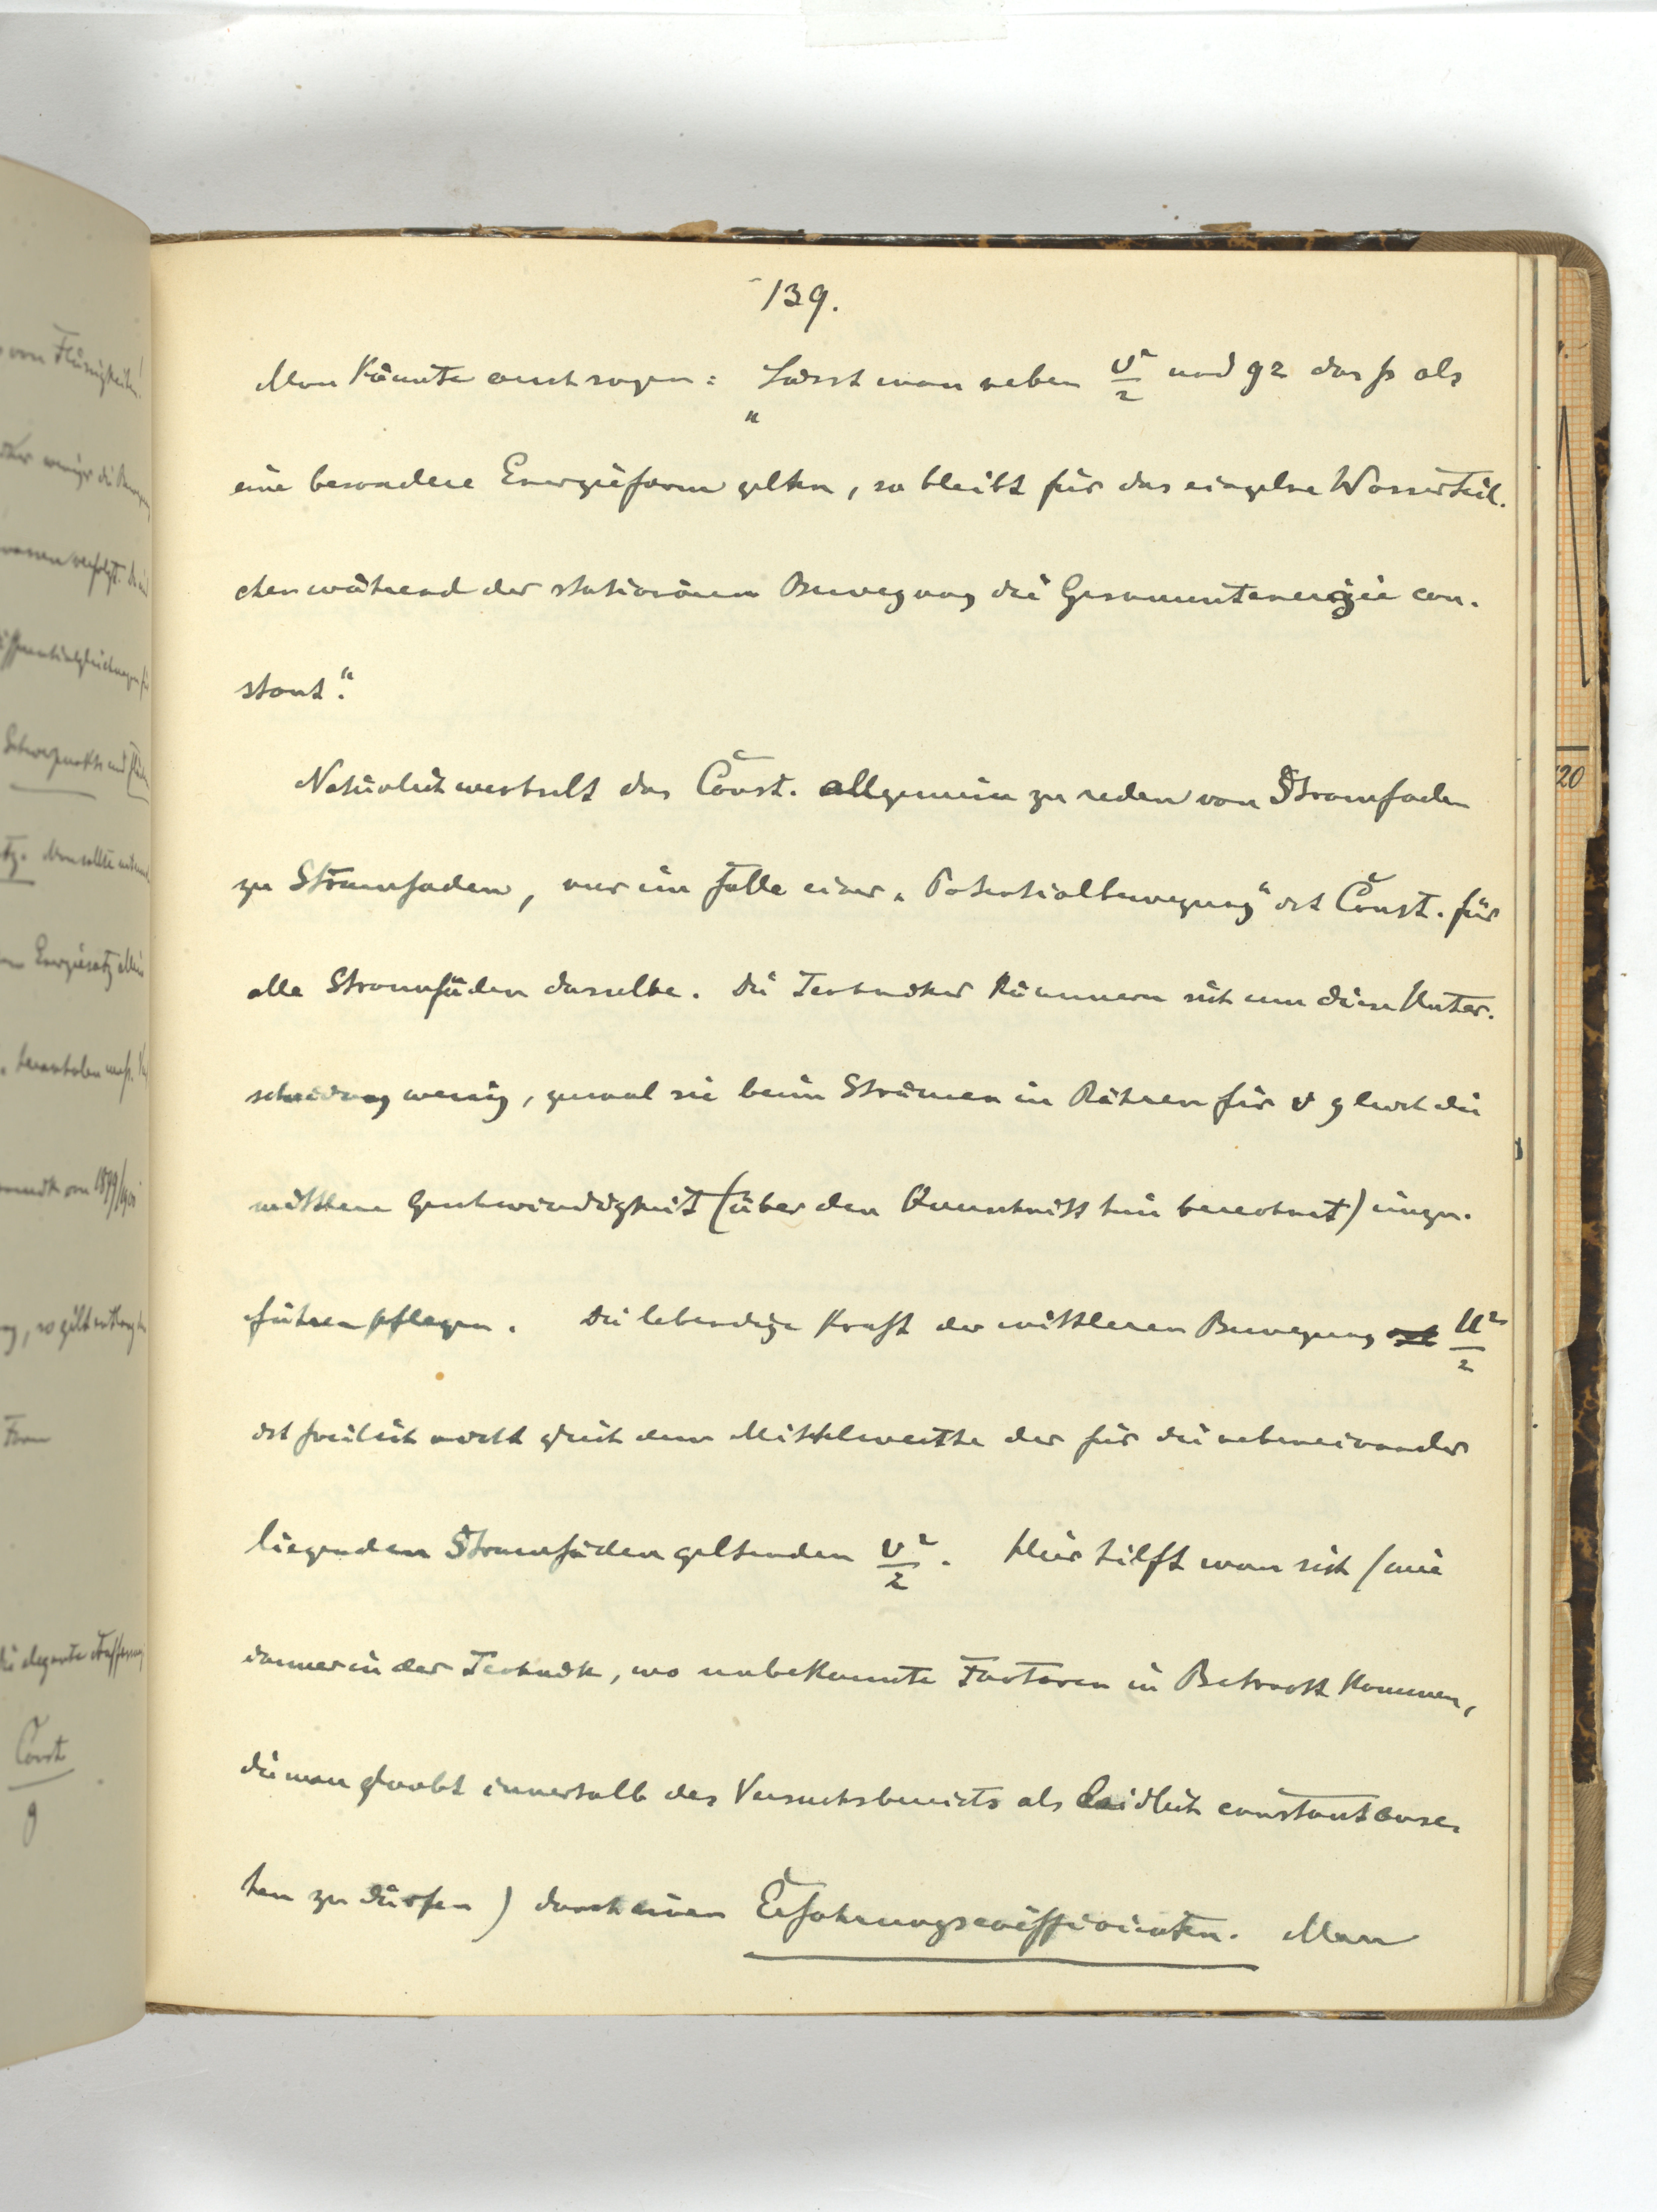 139.
Man könnte auch sagen: „Lässt man neben v²/2 und gz das p als
eine besondere Energieform gelten, so bleibt für das einzelne Wasserteil-
chen während der stationären Bewegung die Gesammtenergie con-
stant“.
Natürlich wechselt das Const. allgemein zu reden von Stromfaden
zu Stromfaden, nur im Falle einer „Potentialbewegung“ ist Const. für
alle Stromfäden dasselbe. Die Techniker kümmern sich um diese Unter-
scheidung wenig, zumal sie beim Strömen in Röhren für v gleich die
mittlere Geschwindigkeit (über den Querschnitt hin berechnet) einzu-
führen pflegen. Die lebendige Kraft der mittleren Bewegung u²/2
ist freilich nicht gleich dem Mittelwerthe der für die nebeneinander
liegenden Stromfäden geltenden v²/2. Hier hilft man sich (wie
immer in der Technik, wo unbekannte Factoren in Betracht kommen,
die man glaubt innerhalb des Versuchsbereichs als leidlich constant anse-
hen zu dürfen) durch einen Erfahrungscoëfficienten. Man
von Flüssigkeiten!
Schwerpunkts und
Energiesatz allein
von 1899/1900
so gilt entlang
Form
die elegante Auffassung
Const
g
20